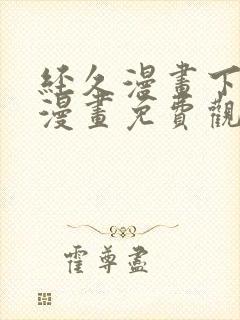 經久漫畫下
漫畫免費觀
霍尊盡